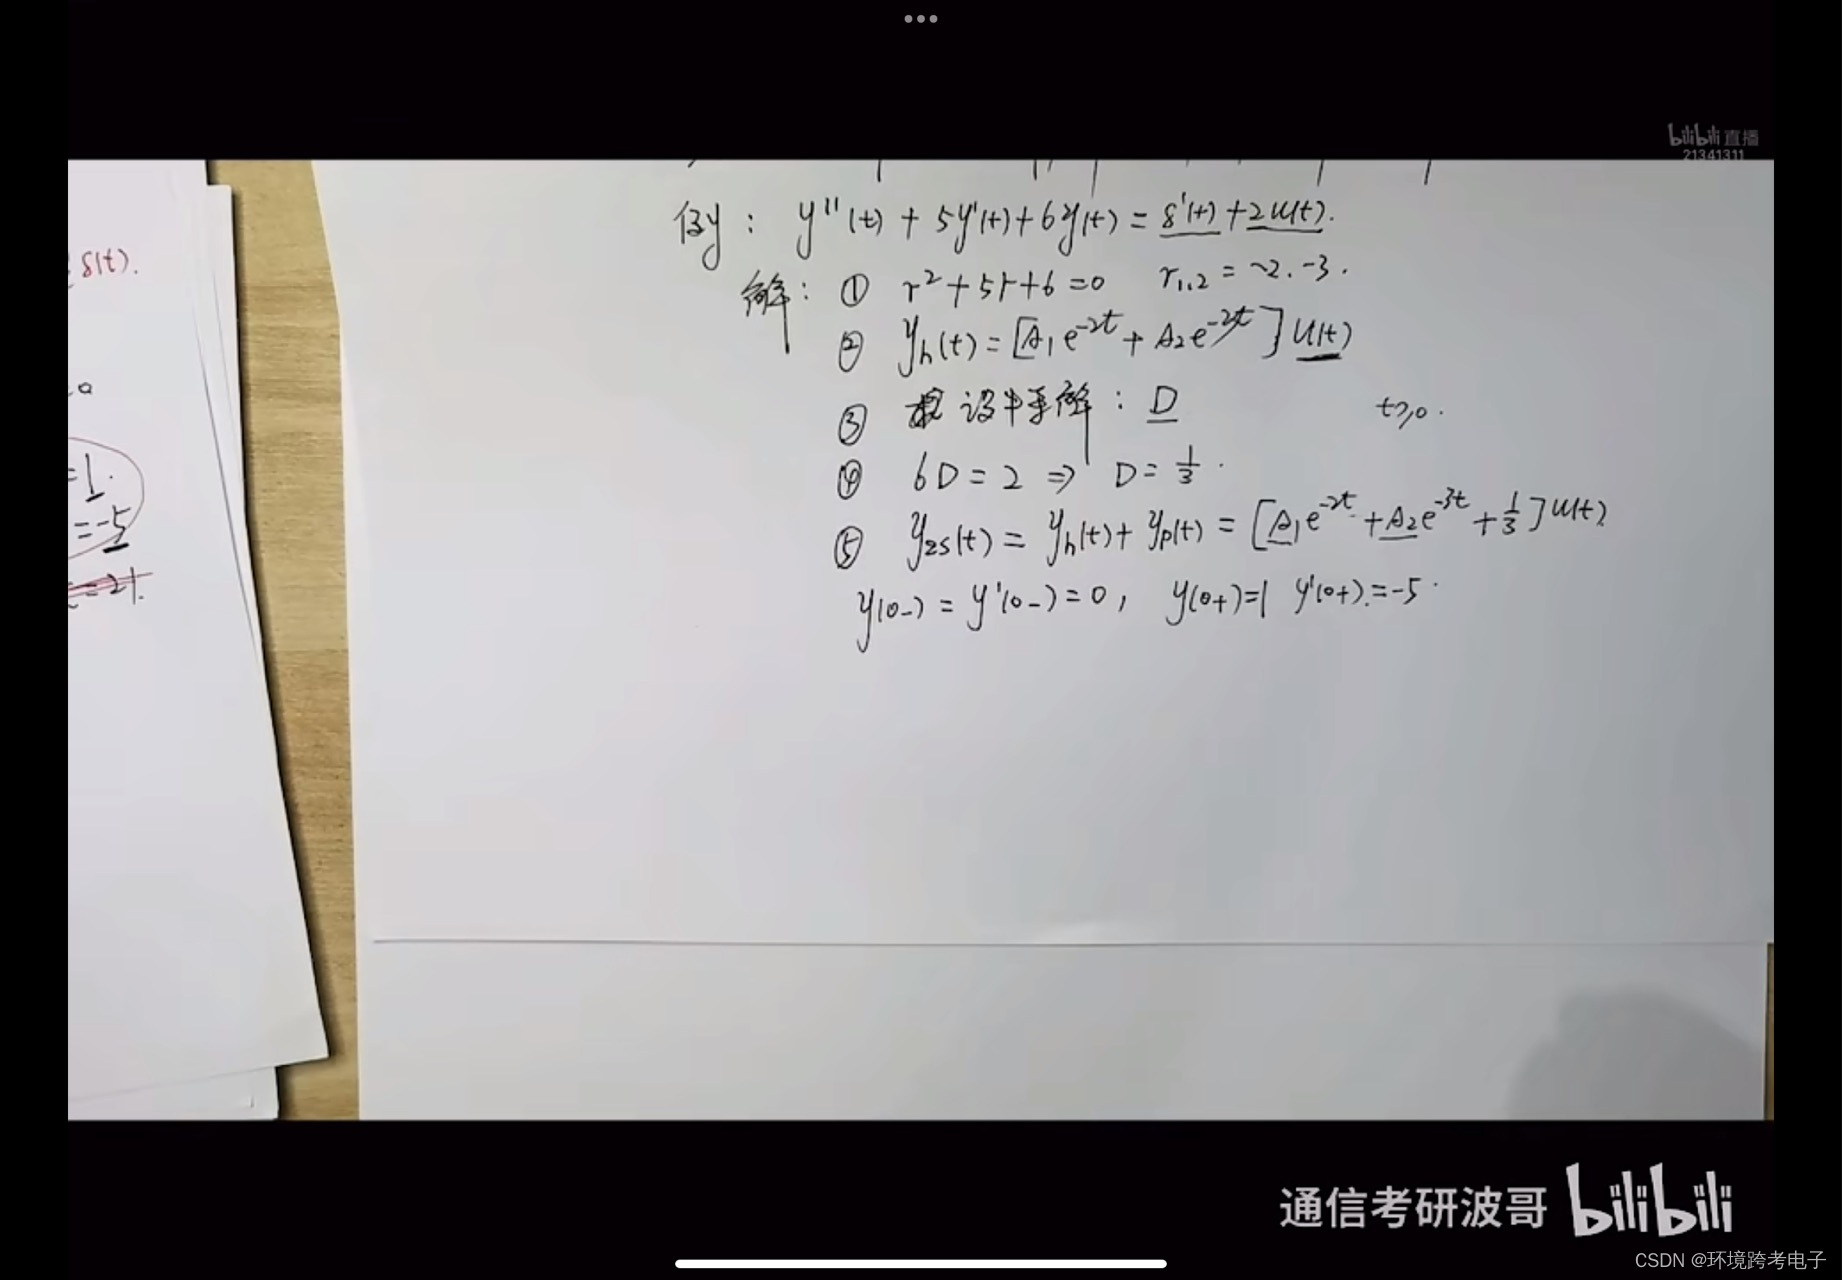 bilibili 直播
21341311
例: y''(t) + 5y'(t) + 6y(t) = δ'(t) + 2u(t).
δ(t).
解: ① r² + 5r + 6 = 0 r₁,₂ = -2. -3.
② yh(t) = [A₁e^-2t + A₂e^-3t] u(t)
③ 设特解: D t≥0.
④ 6D = 2 ⇒ D = 1/3.
=1.
⑤ yzs(t) = yh(t) + yp(t) = [A₁e^-2t + A₂e^-3t + 1/3] u(t)
=-5
y(0-) = y'(0-) = 0, y(0+) = 1 y'(0+) = -5.
通信考研波哥 bilibili
CSDN @环境跨考电子